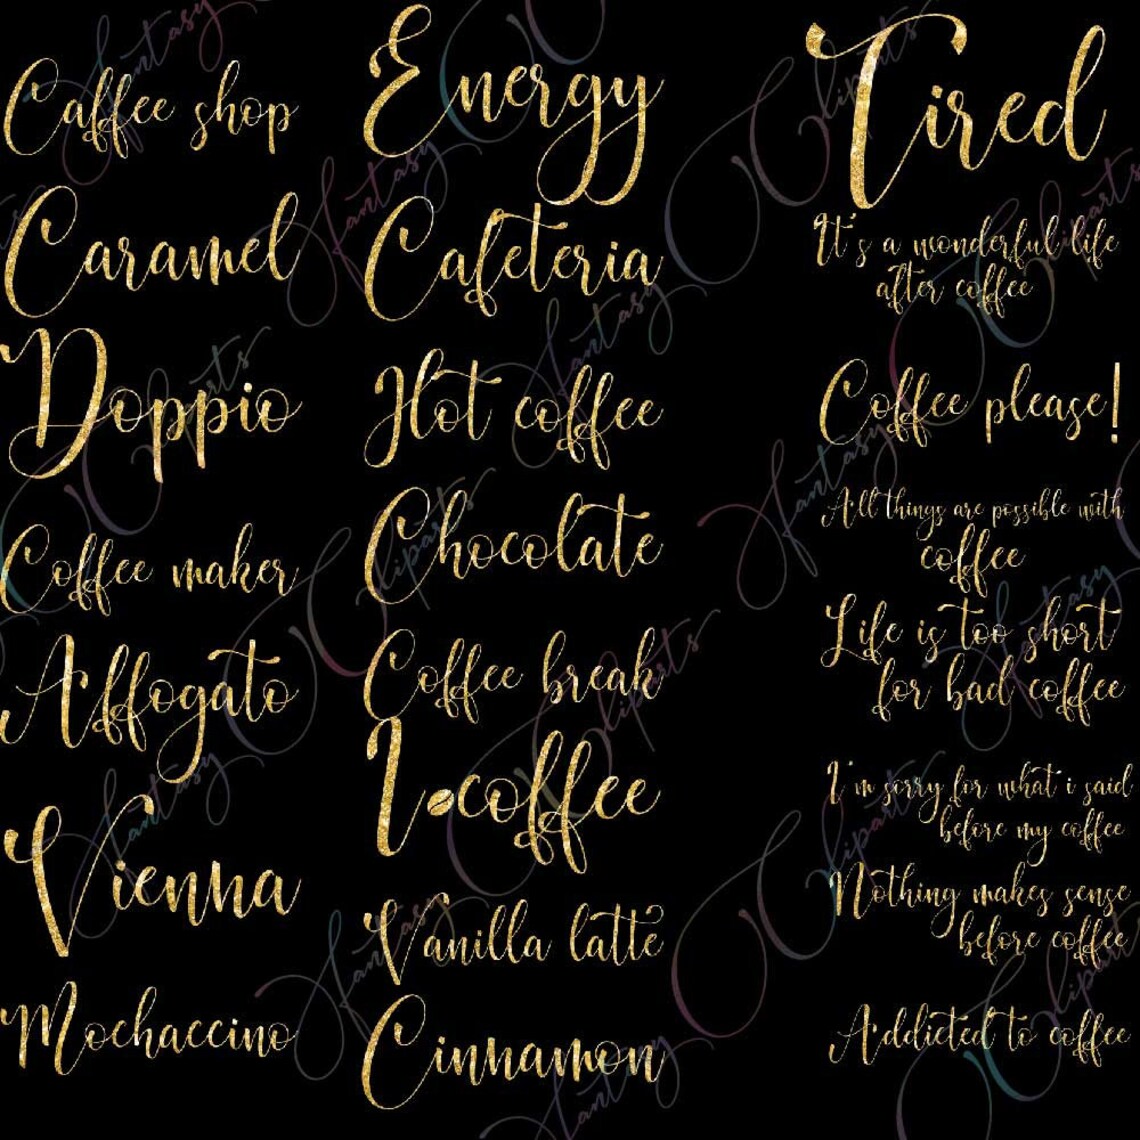 Caffee shop
Caramel
Doppio
Coffee maker
Affogato
Vienna
Mochaccino
Energy
Cafeteria
Hot coffee
Chocolate
Coffee break
I coffee
Vanilla latte
Cinnamon
Tired
It's a wonderful life
after coffee
Coffee please!
All things are possible with
coffee
Life is too short
for bad coffee
I'm sorry for what i said
before my coffee
Nothing makes sense
before coffee
Addicted to coffee
fantasy
Cliparts